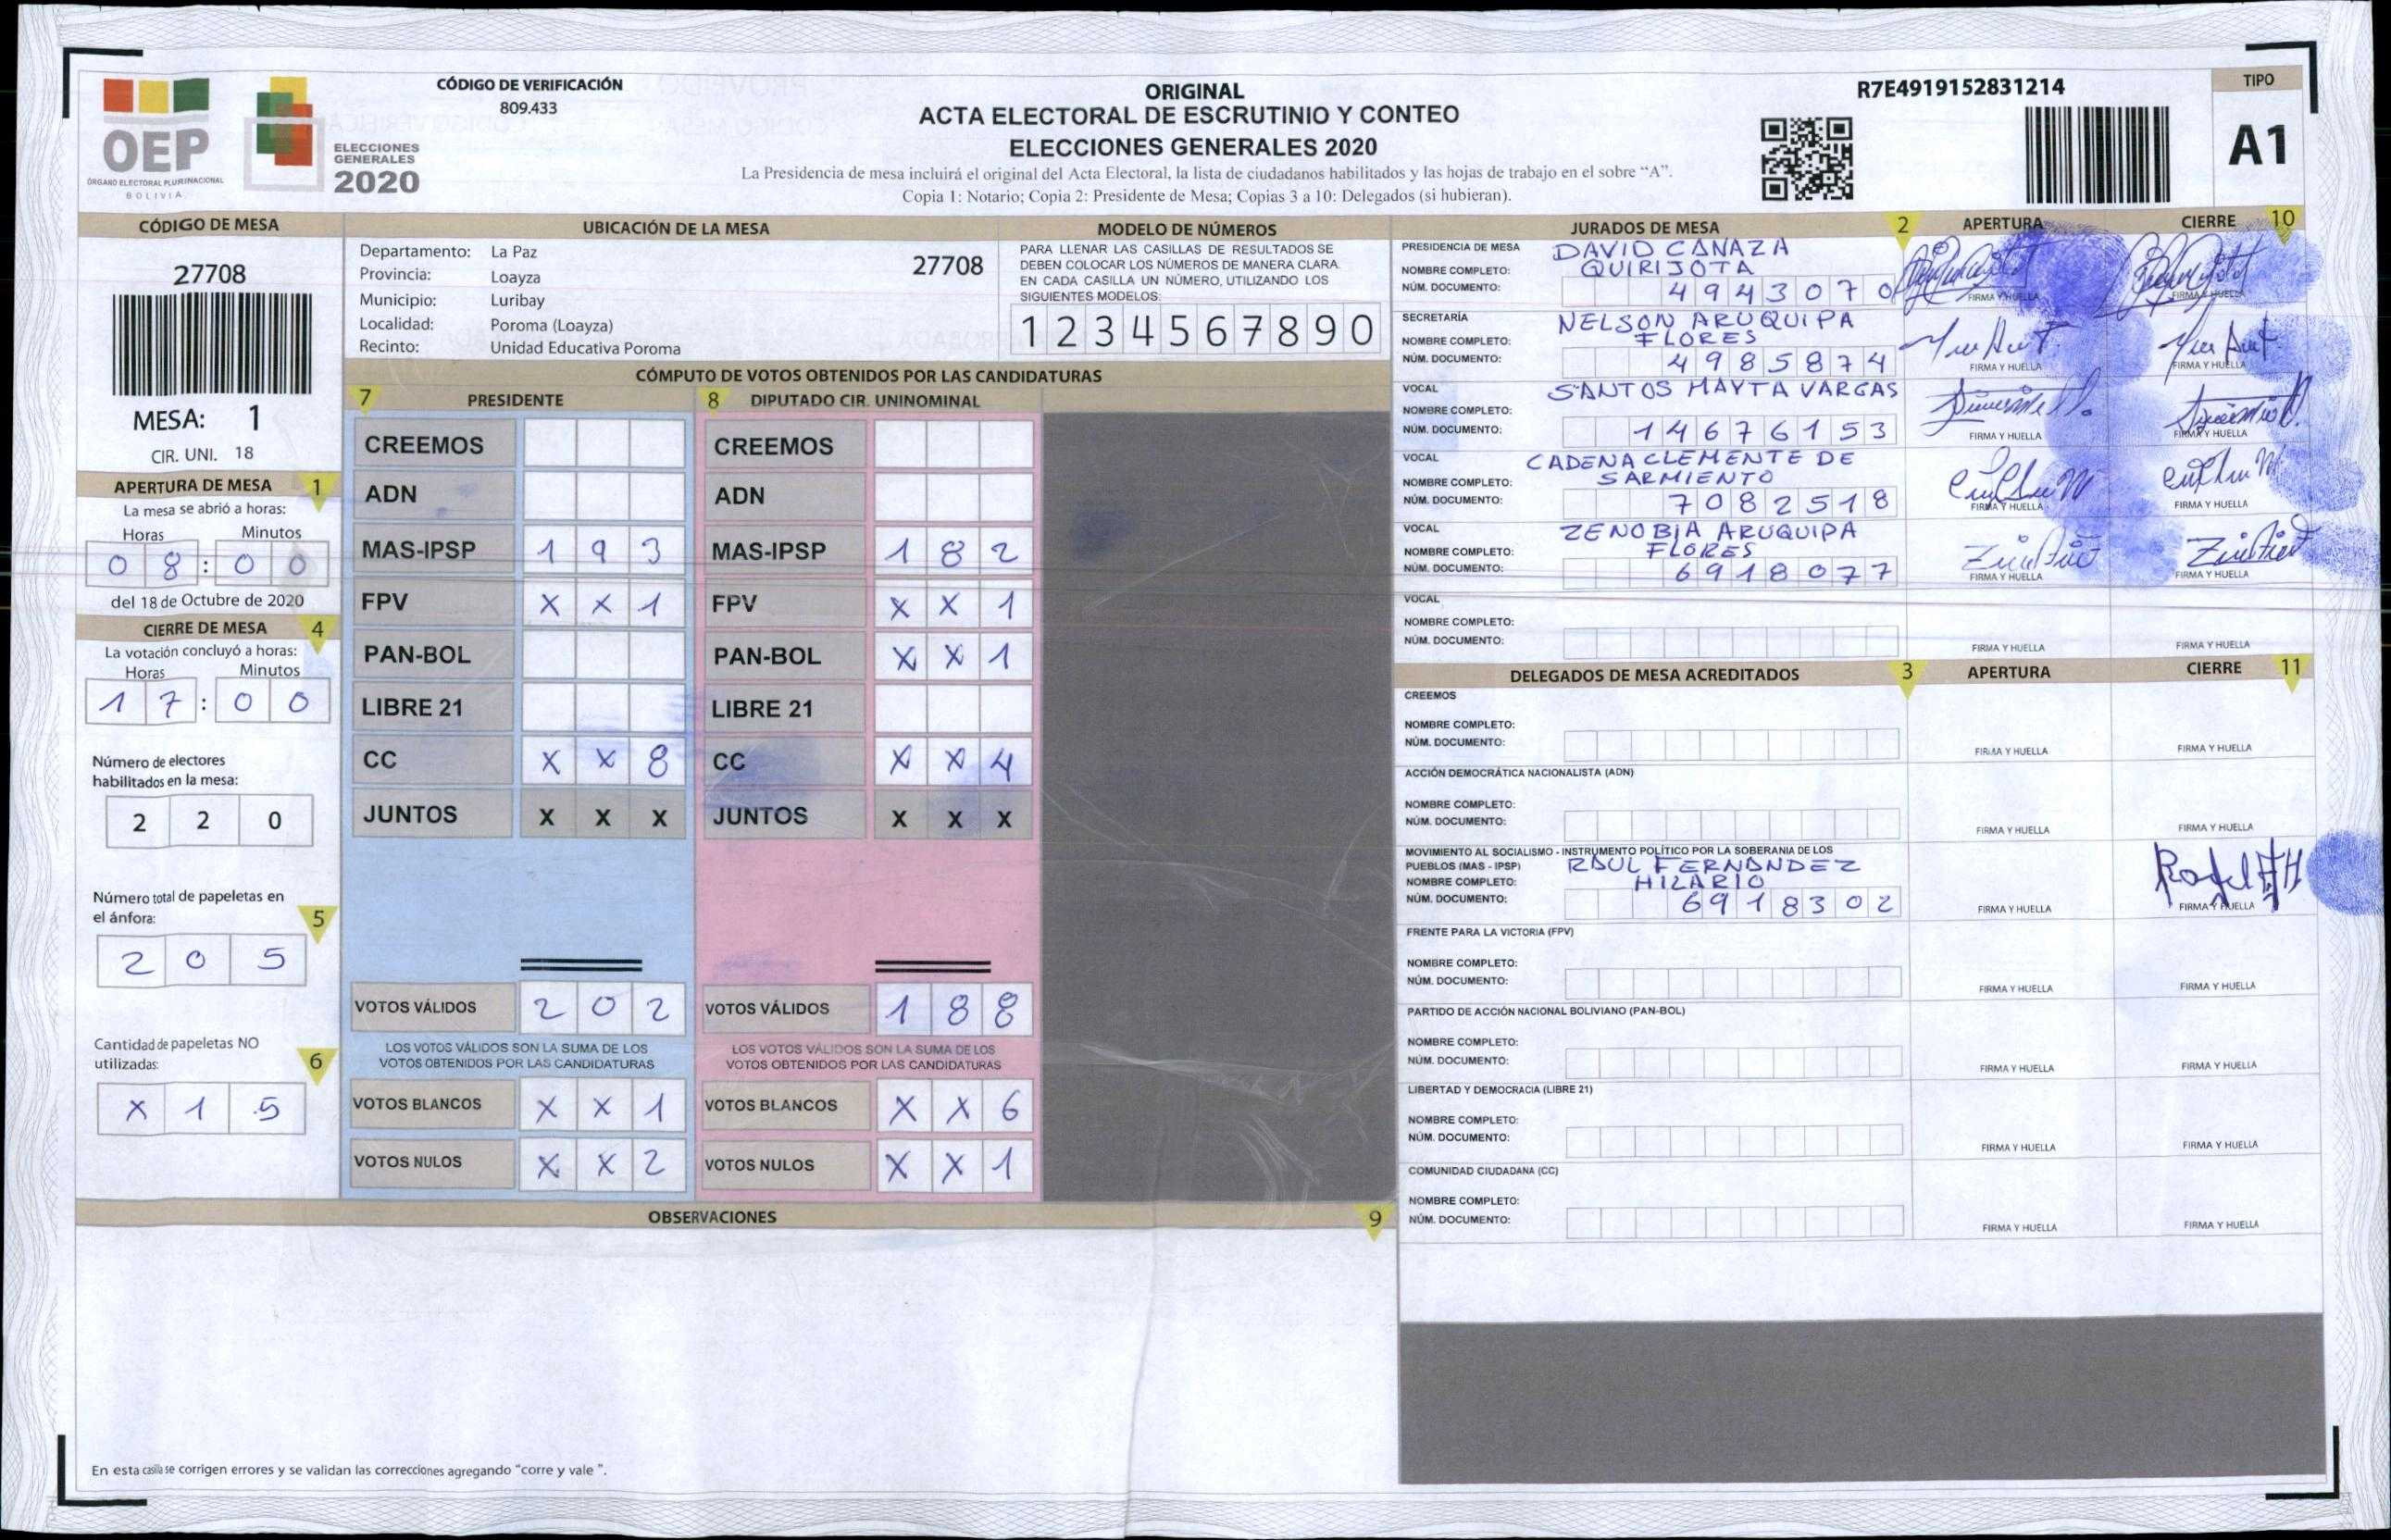 OEP
ÓRGANO ELECTORAL PLURINACIONAL
BOLIVIA
ELECCIONES
GENERALES
2020
CÓDIGO DE VERIFICACIÓN
809.433
ORIGINAL
ACTA ELECTORAL DE ESCRUTINIO Y CONTEO
ELECCIONES GENERALES 2020
La Presidencia de mesa incluirá el original del Acta Electoral, la lista de ciudadanos habilitados y las hojas de trabajo en el sobre “A”.
Copia 1: Notario; Copia 2: Presidente de Mesa; Copias 3 a 10: Delegados (si hubieran).
R7E4919152831214
TIPO
A1
CÓDIGO DE MESA
27708
MESA: 1
CIR. UNI. 18
APERTURA DE MESA 1
La mesa se abrió a horas:
Horas Minutos
0 8 : 0 0
del 18 de Octubre de 2020
CIERRE DE MESA 4
La votación concluyó a horas:
Horas Minutos
1 7 : 0 0
Número de electores
habilitados en la mesa:
2 2 0
Número total de papeletas en
el ánfora: 5
2 0 5
Cantidad de papeletas NO
utilizadas: 6
X 1 5
UBICACIÓN DE LA MESA
Departamento: La Paz
27708
Provincia: Loayza
Municipio: Luribay
Localidad: Poroma (Loayza)
Recinto: Unidad Educativa Poroma
MODELO DE NÚMEROS
PARA LLENAR LAS CASILLAS DE RESULTADOS SE
DEBEN COLOCAR LOS NÚMEROS DE MANERA CLARA.
EN CADA CASILLA UN NÚMERO, UTILIZANDO LOS
SIGUIENTES MODELOS:
1 2 3 4 5 6 7 8 9 0
CÓMPUTO DE VOTOS OBTENIDOS POR LAS CANDIDATURAS
7 PRESIDENTE
CREEMOS
ADN
MAS-IPSP 1 9 3
FPV X X 1
PAN-BOL
LIBRE 21
CC X X 8
JUNTOS X X X
VOTOS VÁLIDOS 2 0 2
LOS VOTOS VÁLIDOS SON LA SUMA DE LOS
VOTOS OBTENIDOS POR LAS CANDIDATURAS
VOTOS BLANCOS X X 1
VOTOS NULOS X X 2
8 DIPUTADO CIR. UNINOMINAL
CREEMOS
ADN
MAS-IPSP 1 8 2
FPV X X 1
PAN-BOL X X 1
LIBRE 21
CC X X 4
JUNTOS X X X
VOTOS VÁLIDOS 1 8 8
LOS VOTOS VÁLIDOS SON LA SUMA DE LOS
VOTOS OBTENIDOS POR LAS CANDIDATURAS
VOTOS BLANCOS X X 6
VOTOS NULOS X X 1
OBSERVACIONES 9
En esta casilla se corrigen errores y se validan las correcciones agregando “corre y vale ”.
JURADOS DE MESA 2 APERTURA CIERRE 10
PRESIDENCIA DE MESA DAVID CANAZA
NOMBRE COMPLETO: QUIRIJOTA
NÚM. DOCUMENTO: 4 9 4 3 0 7 0
FIRMA Y HUELLA FIRMA Y HUELLA
SECRETARÍA NELSON ARUQUIPA
NOMBRE COMPLETO: FLORES
NÚM. DOCUMENTO: 4 9 8 5 8 7 4
FIRMA Y HUELLA FIRMA Y HUELLA
VOCAL SANTOS MAYTA VARGAS
NOMBRE COMPLETO:
NÚM. DOCUMENTO: 1 4 6 7 6 1 5 3
FIRMA Y HUELLA FIRMA Y HUELLA
VOCAL CADENA CLEMENTE DE
NOMBRE COMPLETO: SARMIENTO
NÚM. DOCUMENTO: 7 0 8 2 5 1 8
FIRMA Y HUELLA FIRMA Y HUELLA
VOCAL ZENOBIA ARUQUIPA
NOMBRE COMPLETO: FLORES
NÚM. DOCUMENTO: 6 9 1 8 0 7 7
FIRMA Y HUELLA FIRMA Y HUELLA
VOCAL
NOMBRE COMPLETO:
NÚM. DOCUMENTO:
FIRMA Y HUELLA FIRMA Y HUELLA
DELEGADOS DE MESA ACREDITADOS 3 APERTURA CIERRE 11
CREEMOS
NOMBRE COMPLETO:
NÚM. DOCUMENTO:
FIRMA Y HUELLA FIRMA Y HUELLA
ACCIÓN DEMOCRÁTICA NACIONALISTA (ADN)
NOMBRE COMPLETO:
NÚM. DOCUMENTO:
FIRMA Y HUELLA FIRMA Y HUELLA
MOVIMIENTO AL SOCIALISMO - INSTRUMENTO POLÍTICO POR LA SOBERANIA DE LOS
PUEBLOS (MAS - IPSP) RAUL FERNANDEZ
NOMBRE COMPLETO: HILARIO
NÚM. DOCUMENTO: 6 9 1 8 3 0 2
FIRMA Y HUELLA FIRMA Y HUELLA
FRENTE PARA LA VICTORIA (FPV)
NOMBRE COMPLETO:
NÚM. DOCUMENTO:
FIRMA Y HUELLA FIRMA Y HUELLA
PARTIDO DE ACCIÓN NACIONAL BOLIVIANO (PAN-BOL)
NOMBRE COMPLETO:
NÚM. DOCUMENTO:
FIRMA Y HUELLA FIRMA Y HUELLA
LIBERTAD Y DEMOCRACIA (LIBRE 21)
NOMBRE COMPLETO:
NÚM. DOCUMENTO:
FIRMA Y HUELLA FIRMA Y HUELLA
COMUNIDAD CIUDADANA (CC)
NOMBRE COMPLETO:
NÚM. DOCUMENTO:
FIRMA Y HUELLA FIRMA Y HUELLA